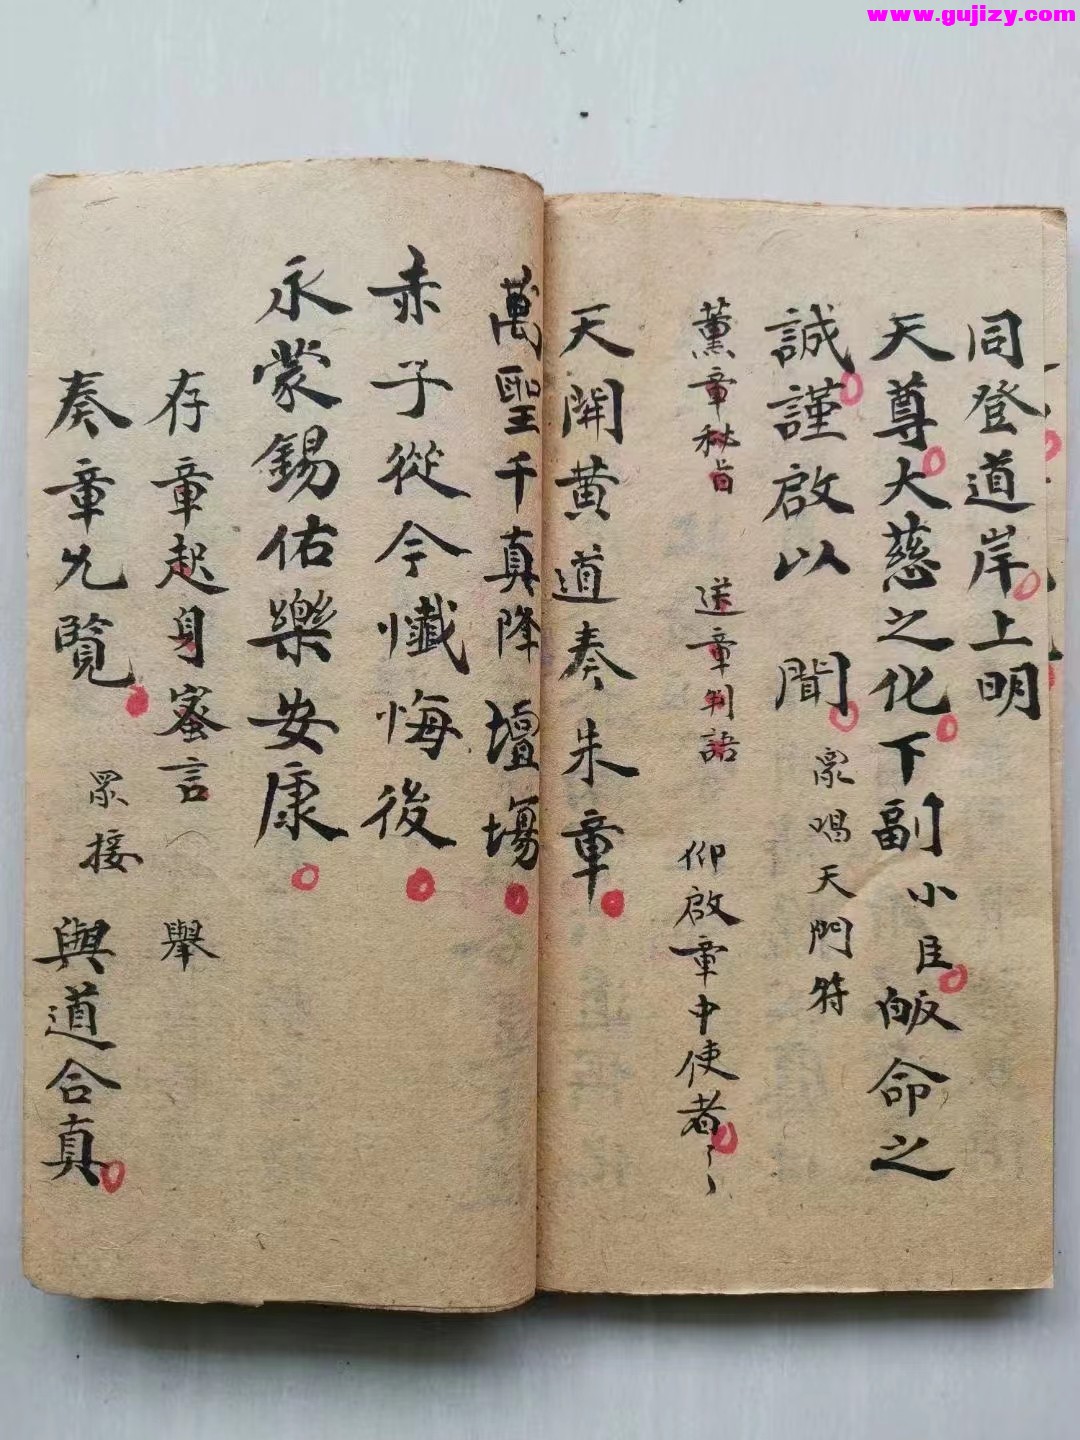 www.gujizy.com
同登道岸上明
天尊大慈之化下副小臣皈命之
誠謹啟以聞 衆唱天門符
薰章秘旨 送章判語 仰啟章中使者
天開黄道奏朱章
萬聖千真降壇塲
赤子從今懺悔後
永蒙錫佑樂安康
存章起身蜜言 舉
奏章允覧 眾接 與道合真